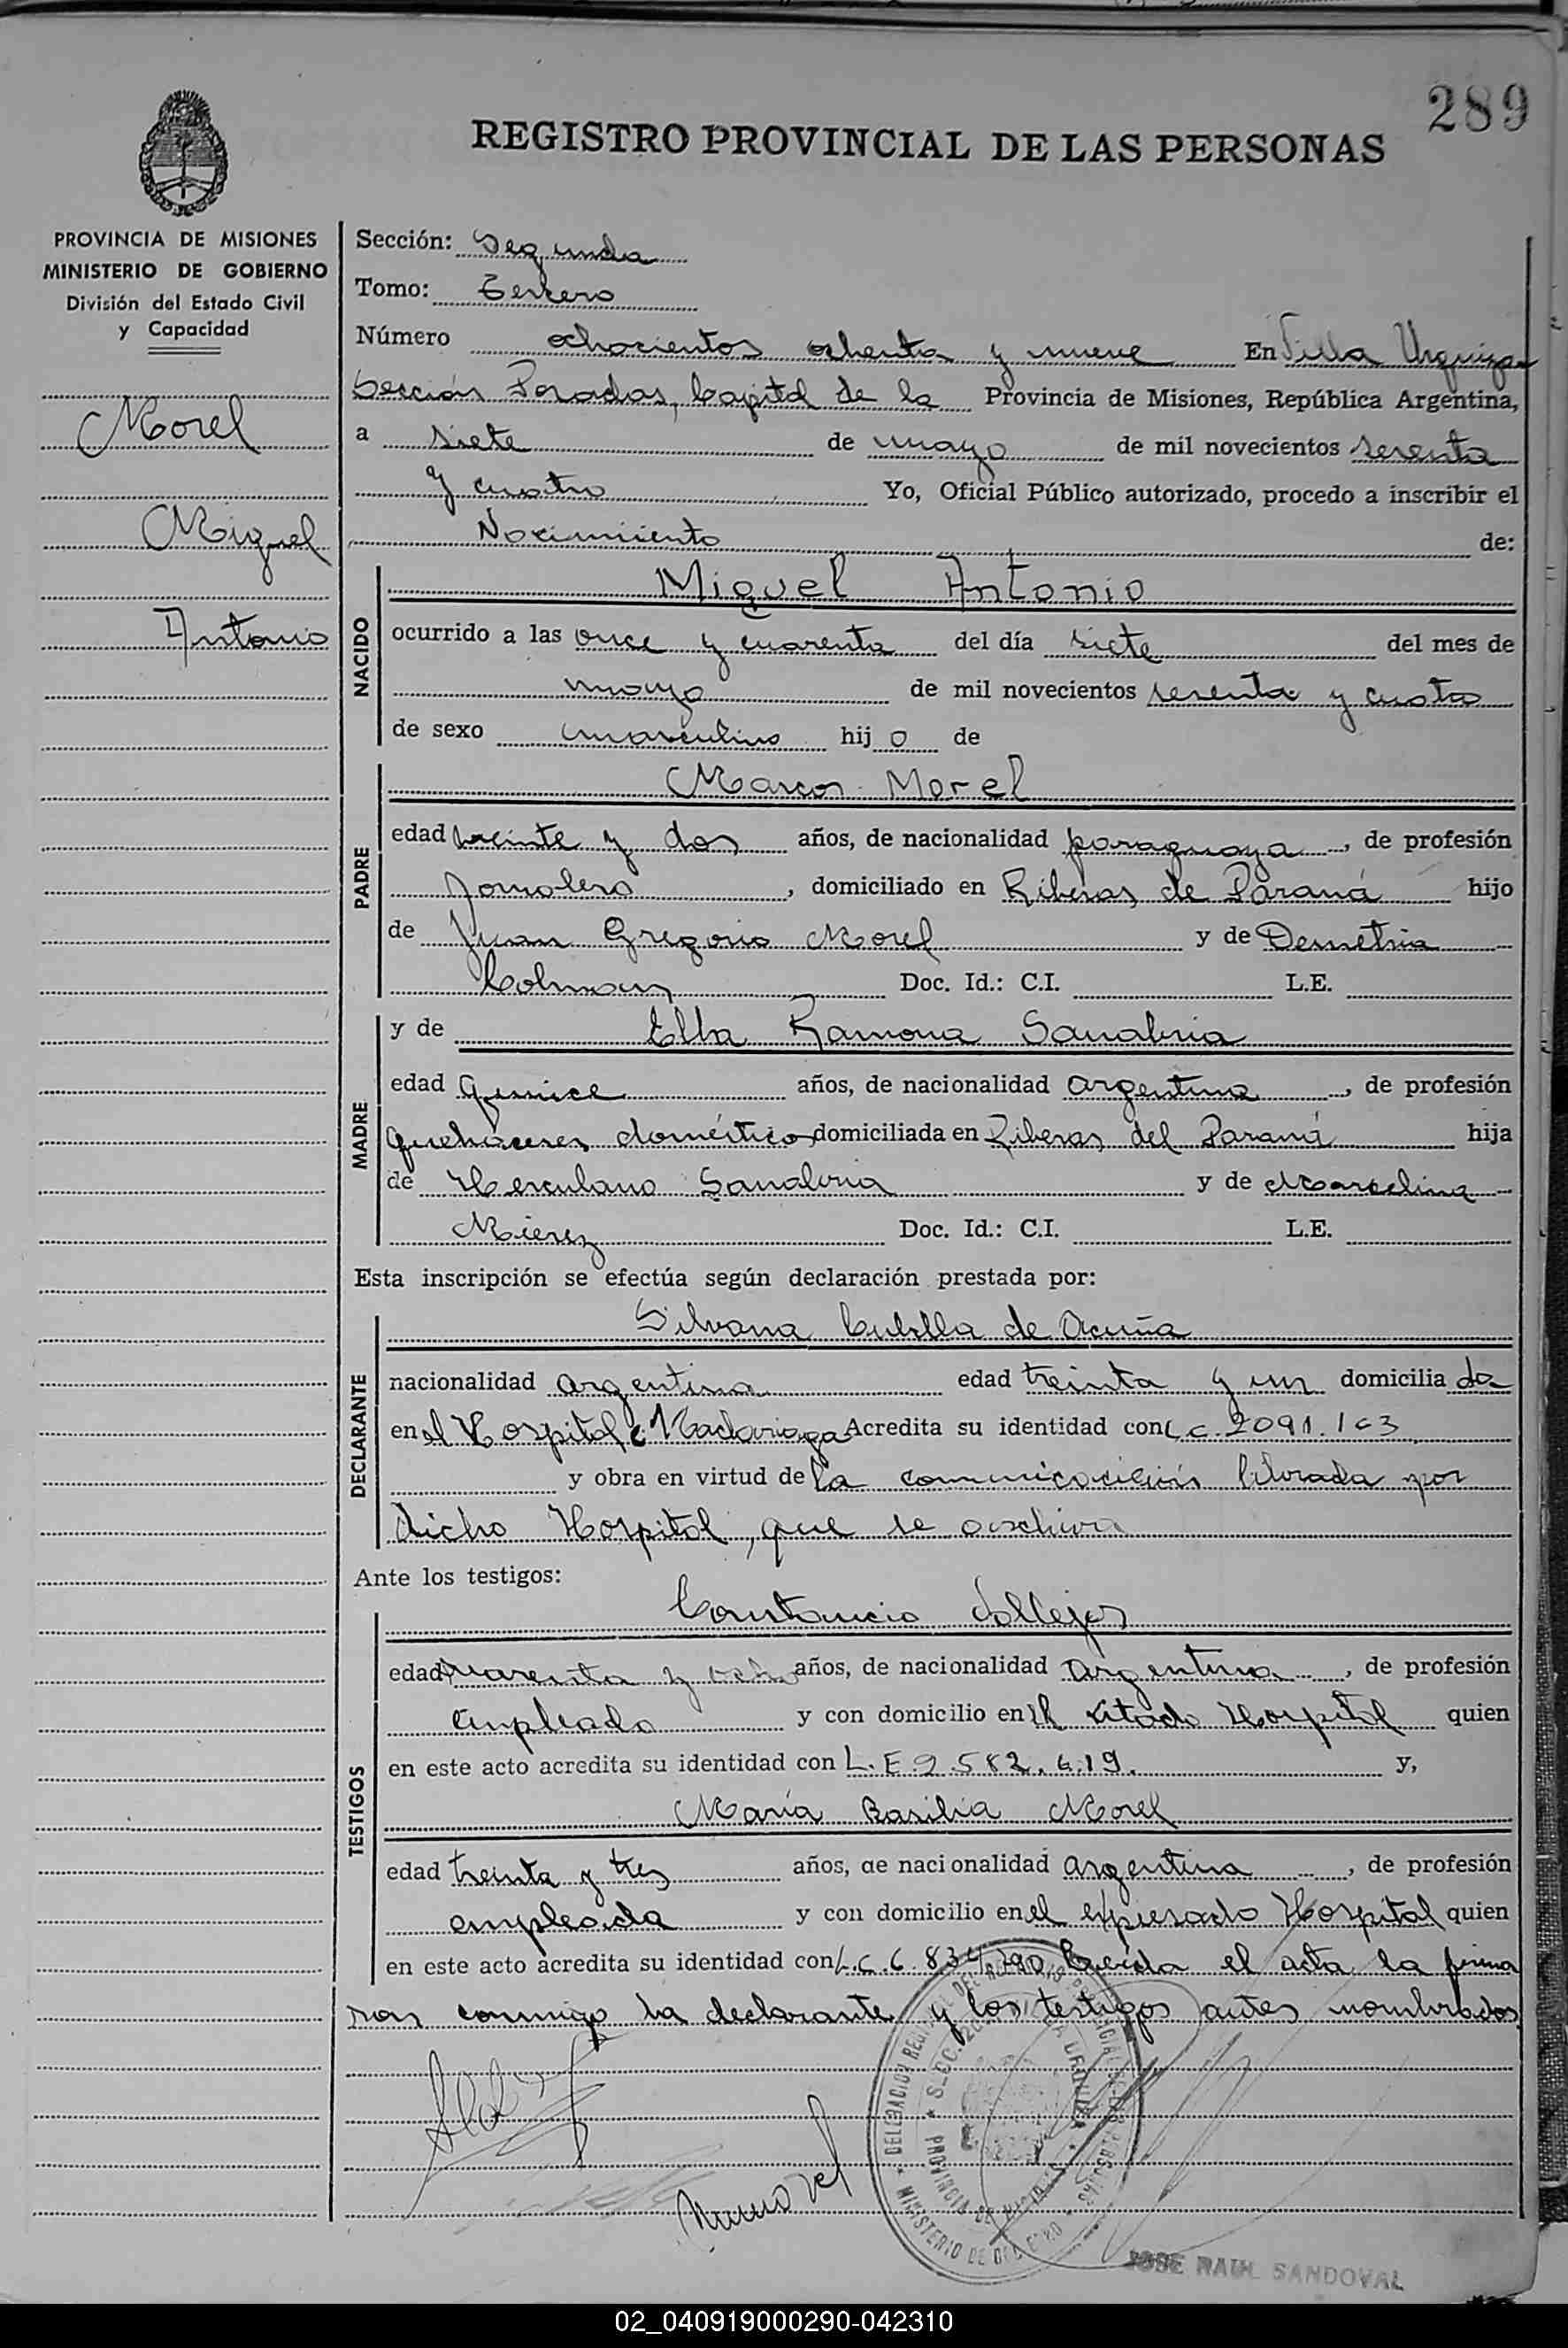 289
REGISTRO PROVINCIAL DE LAS PERSONAS
PROVINCIA DE MISIONES
MINISTERIO DE GOBIERNO
División del Estado Civil
y Capacidad
Morel
Miguel
Antonio
Sección: Segunda
Tomo: Tercero
Número ochocientos ochenta y nueve En Villa Urquiza
Sección Posadas, Capital de la Provincia de Misiones, República Argentina,
a siete de mayo de mil novecientos sesenta
y cuatro Yo, Oficial Público autorizado, procedo a inscribir el
Nacimiento de:
NACIDO
Miguel Antonio
ocurrido a las once y cuarenta del día siete del mes de
mayo de mil novecientos sesenta y cuatro
de sexo masculino hijo de
PADRE
Marcos Morel
edad treinta y dos años, de nacionalidad paraguaya, de profesión
Jornalero, domiciliado en Riberas de Paraná hijo
de Juan Gregorio Morel y de Demetria
Colman Doc. Id.: C.I. L.E.
MADRE
y de Elba Ramona Sanabria
edad quince años, de nacionalidad argentina, de profesión
quehaceres doméstico domiciliada en Riberas del Paraná hija
de Herculano Sanabria y de Marcelina
Mierez Doc. Id.: C.I. L.E.
Esta inscripción se efectúa según declaración prestada por:
DECLARANTE
Silvana de Acuña
nacionalidad argentina edad treinta y un domiciliada
en el Hospital Madariaga Acredita su identidad con L.C. 2091.163
y obra en virtud de la librada por
dicho Hospital, que se archiva
Ante los testigos:
TESTIGOS
Constancio Vallejos
edad cuarenta y ocho años, de nacionalidad argentina, de profesión
empleado y con domicilio en el citado Hospital quien
en este acto acredita su identidad con L.E. y,
María Basilia Morel
edad treinta y tres años, de nacionalidad argentina, de profesión
empleada y con domicilio en el expresado Hospital quien
en este acto acredita su identidad con L.C. Leída el acta la firma
ron conmigo la declarante y los testigos antes nombrados
JOSE RAUL SANDOVAL
02_040919000290-042310